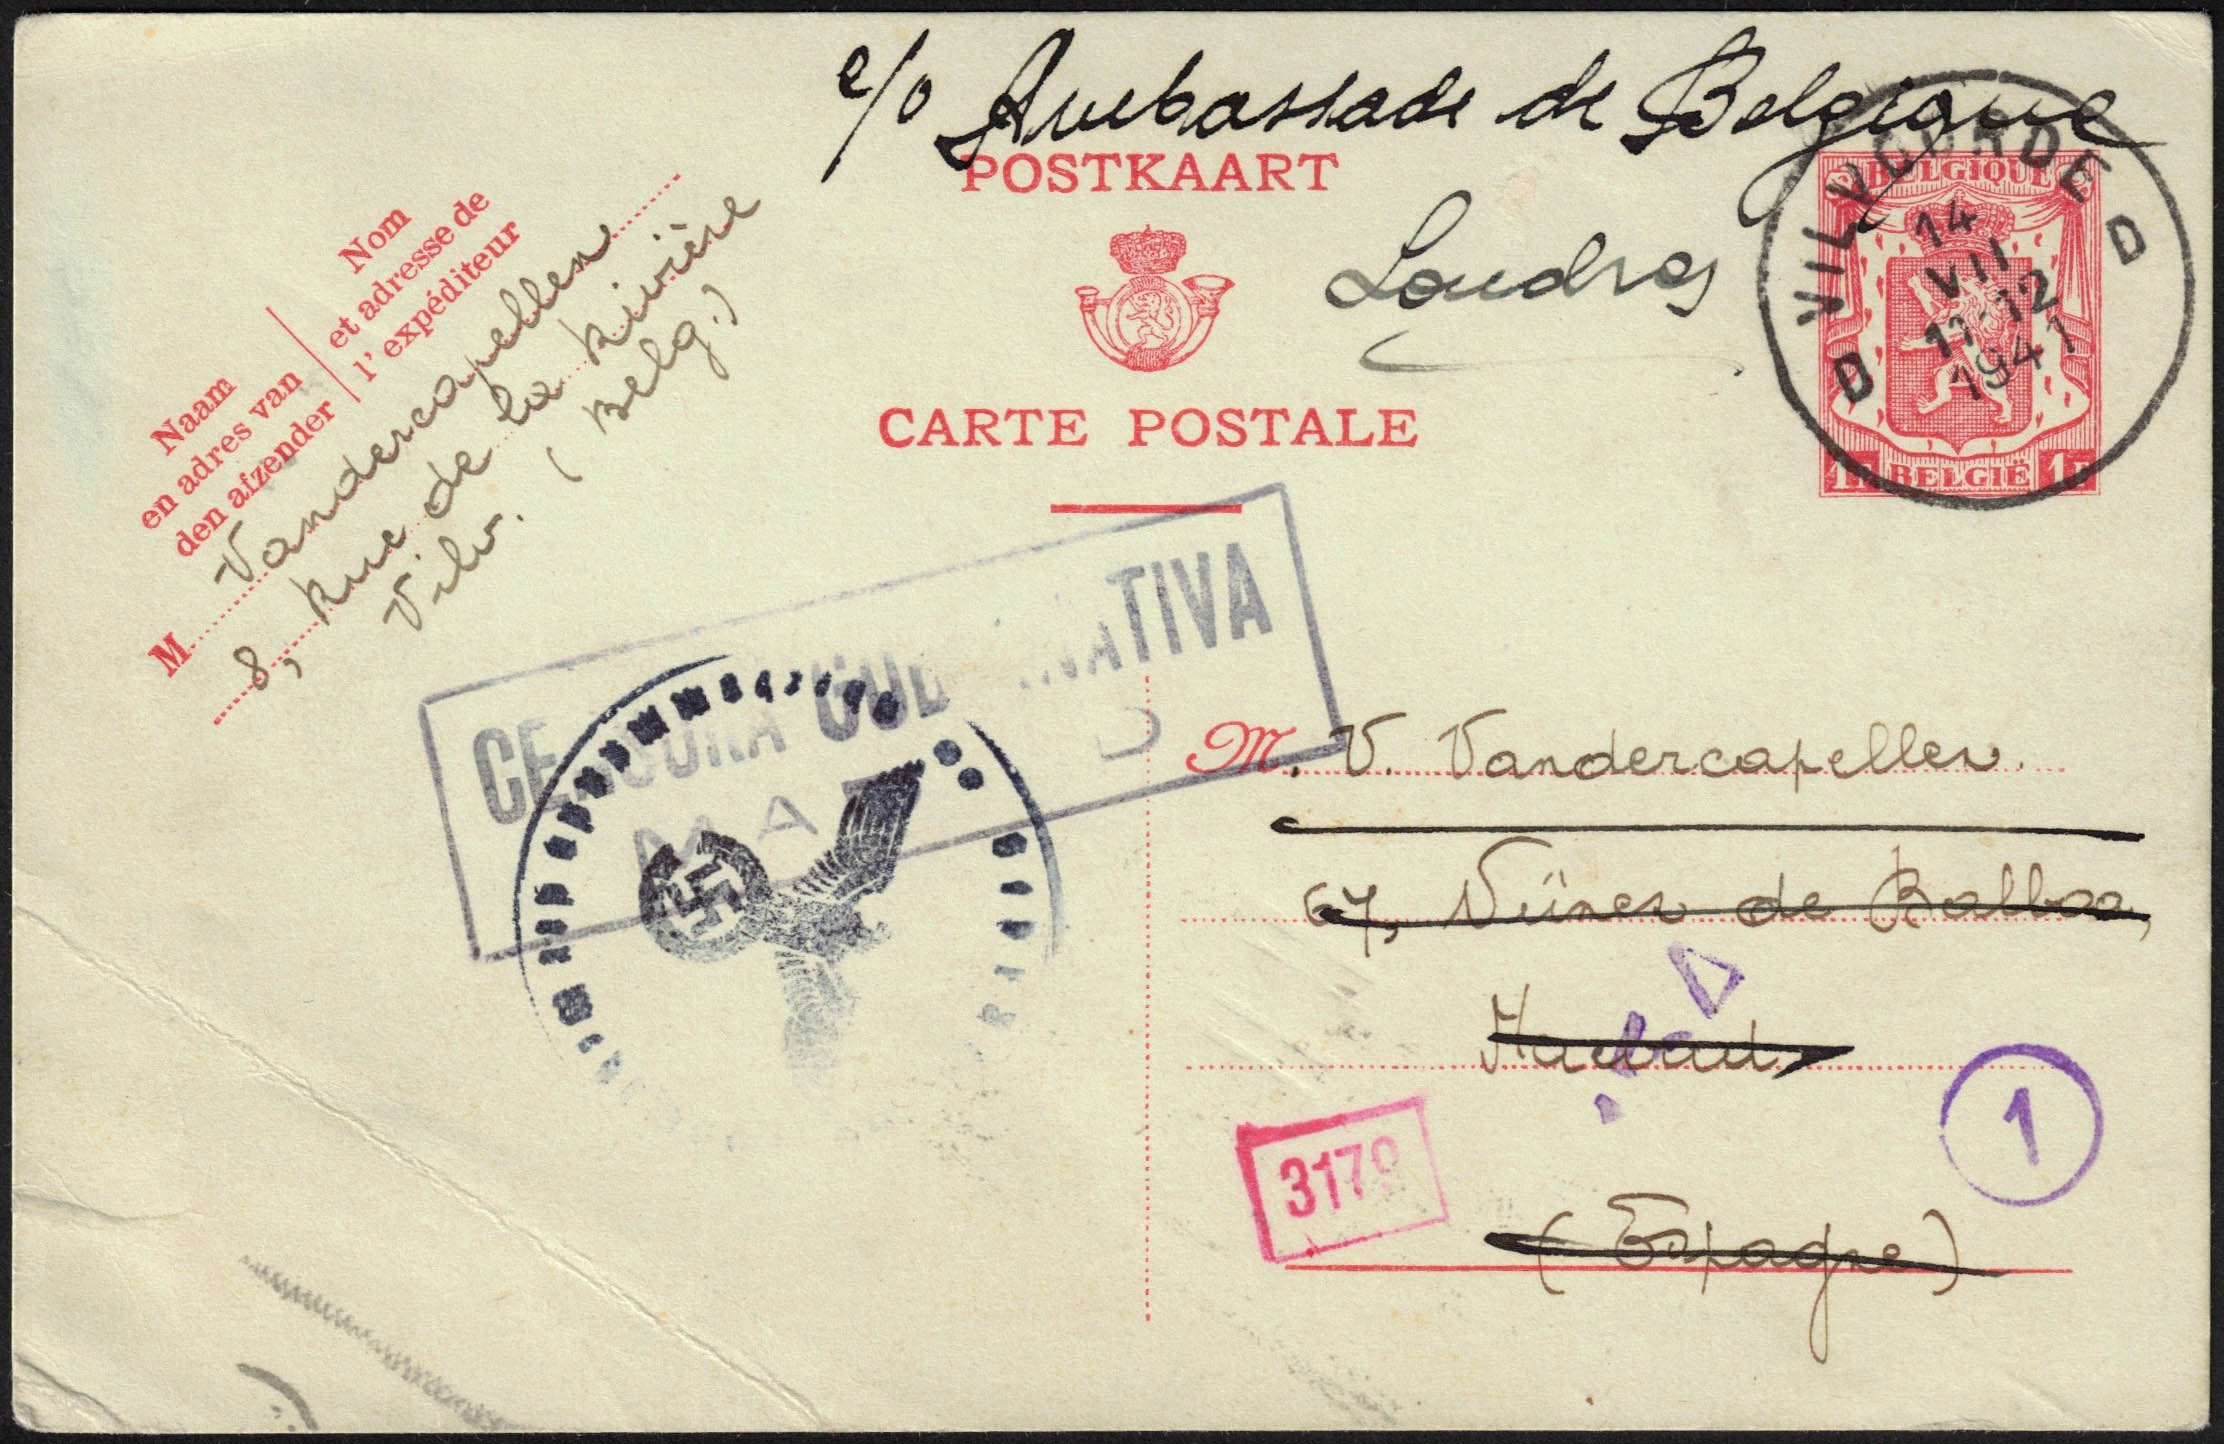 c/o Ambassade de Belgique
POSTKAART
Londres
CARTE POSTALE
Nom
et adresse de
l'expéditeur
Naam
en adres van
den afzender
M. Vandercapellen
8, Rue de la Rivière
Vilv. (Belg.)
VILVOORDE
D D
14
VII
11-12
1941
BELGIQUE
1F BELGIË 1F
CENSURA GUBERNATIVA
M. V. Vandercapellen.
67, Núnez de Balboa,
Madrid
(Espagne)
1